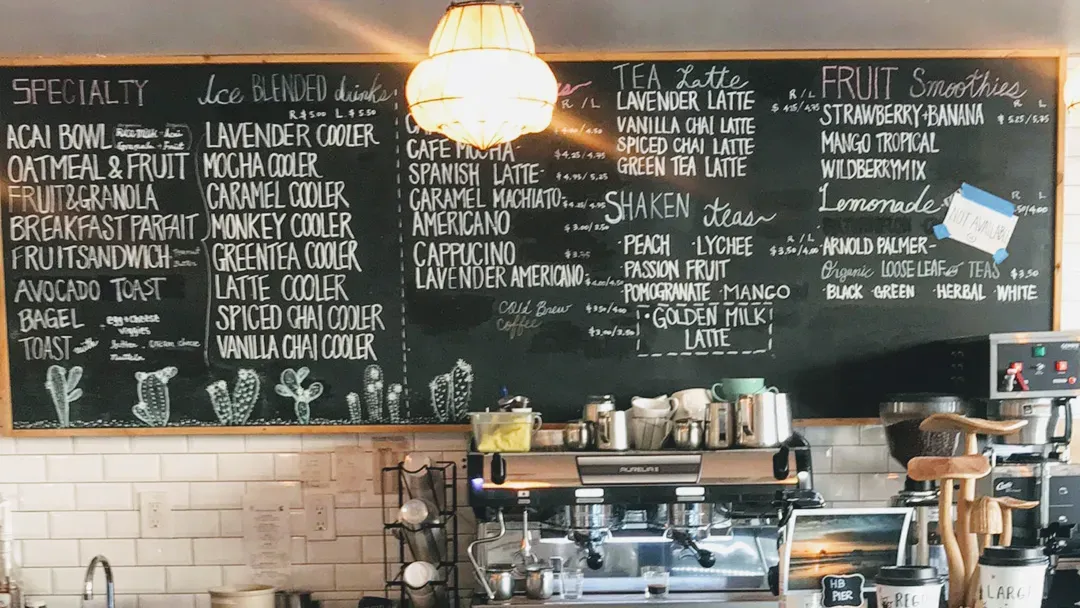 SPECIALTY
ACAI BOWL
OATMEAL & FRUIT
FRUIT & GRANOLA
BREAKFAST PARFAIT
FRUIT SANDWICH
AVOCADO TOAST
BAGEL
TOAST with
egg + cheese
veggies
butter cream cheese
nutella
Ice BLENDED drinks
R $5.00 L $5.50
LAVENDER COOLER
MOCHA COOLER
CARAMEL COOLER
MONKEY COOLER
GREENTEA COOLER
LATTE COOLER
SPICED CHAI COOLER
VANILLA CHAI COOLER
R / L
CAFE MOCHA $4.25/4.75
SPANISH LATTE $4.75/5.25
CARAMEL MACHIATO
AMERICANO
CAPPUCINO
LAVENDER AMERICANO
Cold Brew
Coffee
TEA Latte
R / L
LAVENDER LATTE
VANILLA CHAI LATTE
SPICED CHAI LATTE
GREEN TEA LATTE
SHAKEN teas
R / L
·PEACH ·LYCHEE
PASSION FRUIT
POMOGRANATE ·MANGO
·GOLDEN MILK
LATTE
FRUIT Smoothies
R L
STRAWBERRY+BANANA $5.25/5.75
MANGO TROPICAL
WILDBERRY MIX
Lemonade
R L
NOT AVAILABLE
ARNOLD PALMER-
Organic LOOSE LEAF TEAS $3.50
·BLACK ·GREEN ·HERBAL ·WHITE
AURELIA II
HB
PIER
REG
LARGE